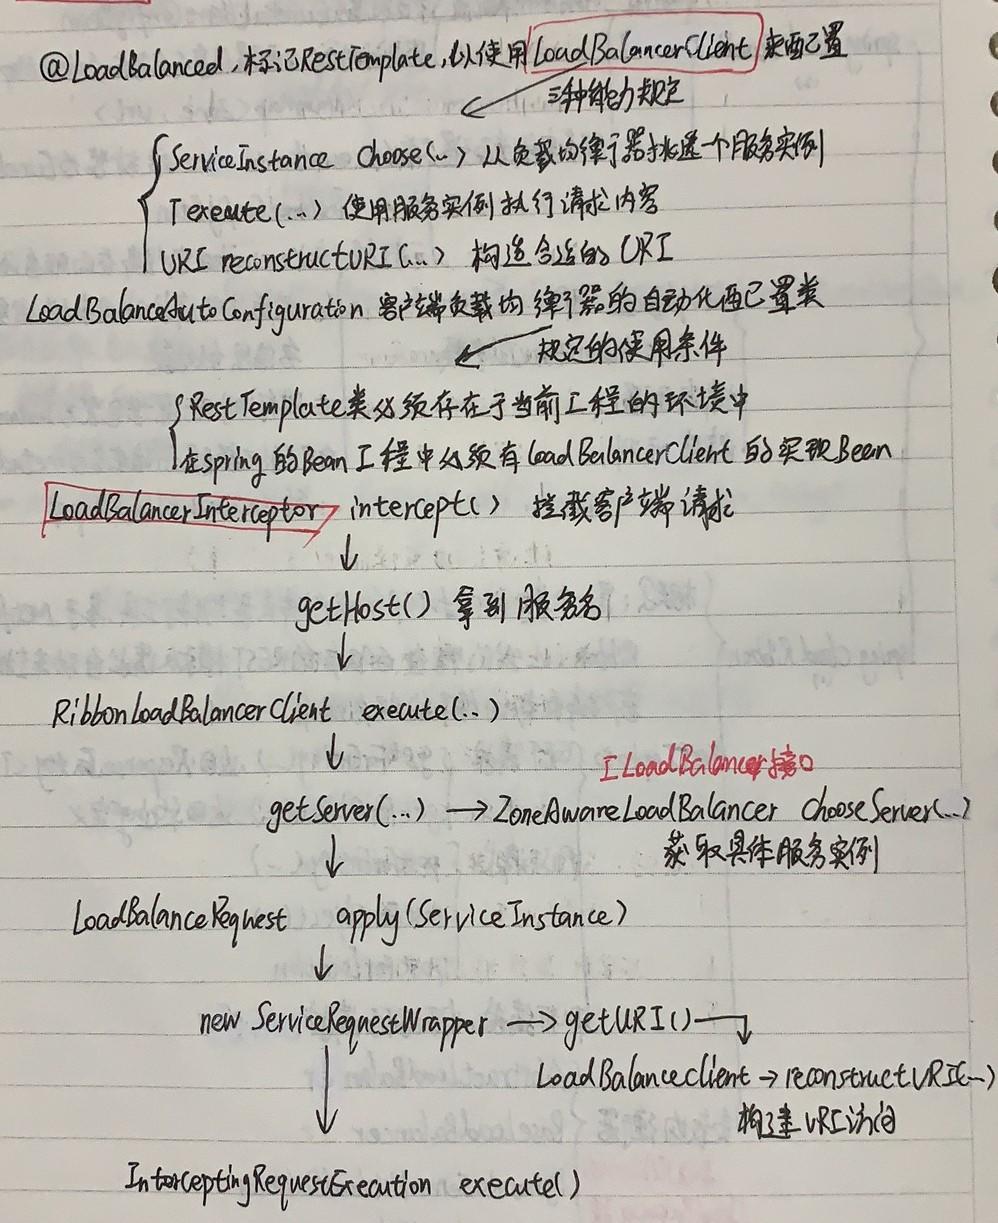 @LoadBalanced,标记RestTemplate,以使用LoadBalancerClient来配置
三种能力规定
ServiceInstance choose(..) 从负载均衡器挑选一个服务实例
T execute(...) 使用服务实例执行请求内容
URI reconstructURI(...) 构造合适的URI
LoadBalanceAutoConfiguration 客户端负载均衡器的自动化配置类
规定的使用条件
RestTemplate类必须存在于当前工程的环境中
在spring的Bean工程中必须有loadBalancerClient的实现Bean
LoadBalancerInterceptor intercept() 拦截客户端请求
↓
getHost() 拿到服务名
↓
RibbonLoadBalancerClient execute(..)
↓
ILoadBalancer接口
getServer(...) → ZoneAwareLoadBalancer chooseServer(...)
获取具体服务实例
↓
LoadBalanceRequest apply(ServiceInstance)
↓
new ServiceRequestWrapper → getURI()
LoadBalanceclient → reconstructURI(...)
构建URI访问
↓
InterceptingRequestExecution execute()